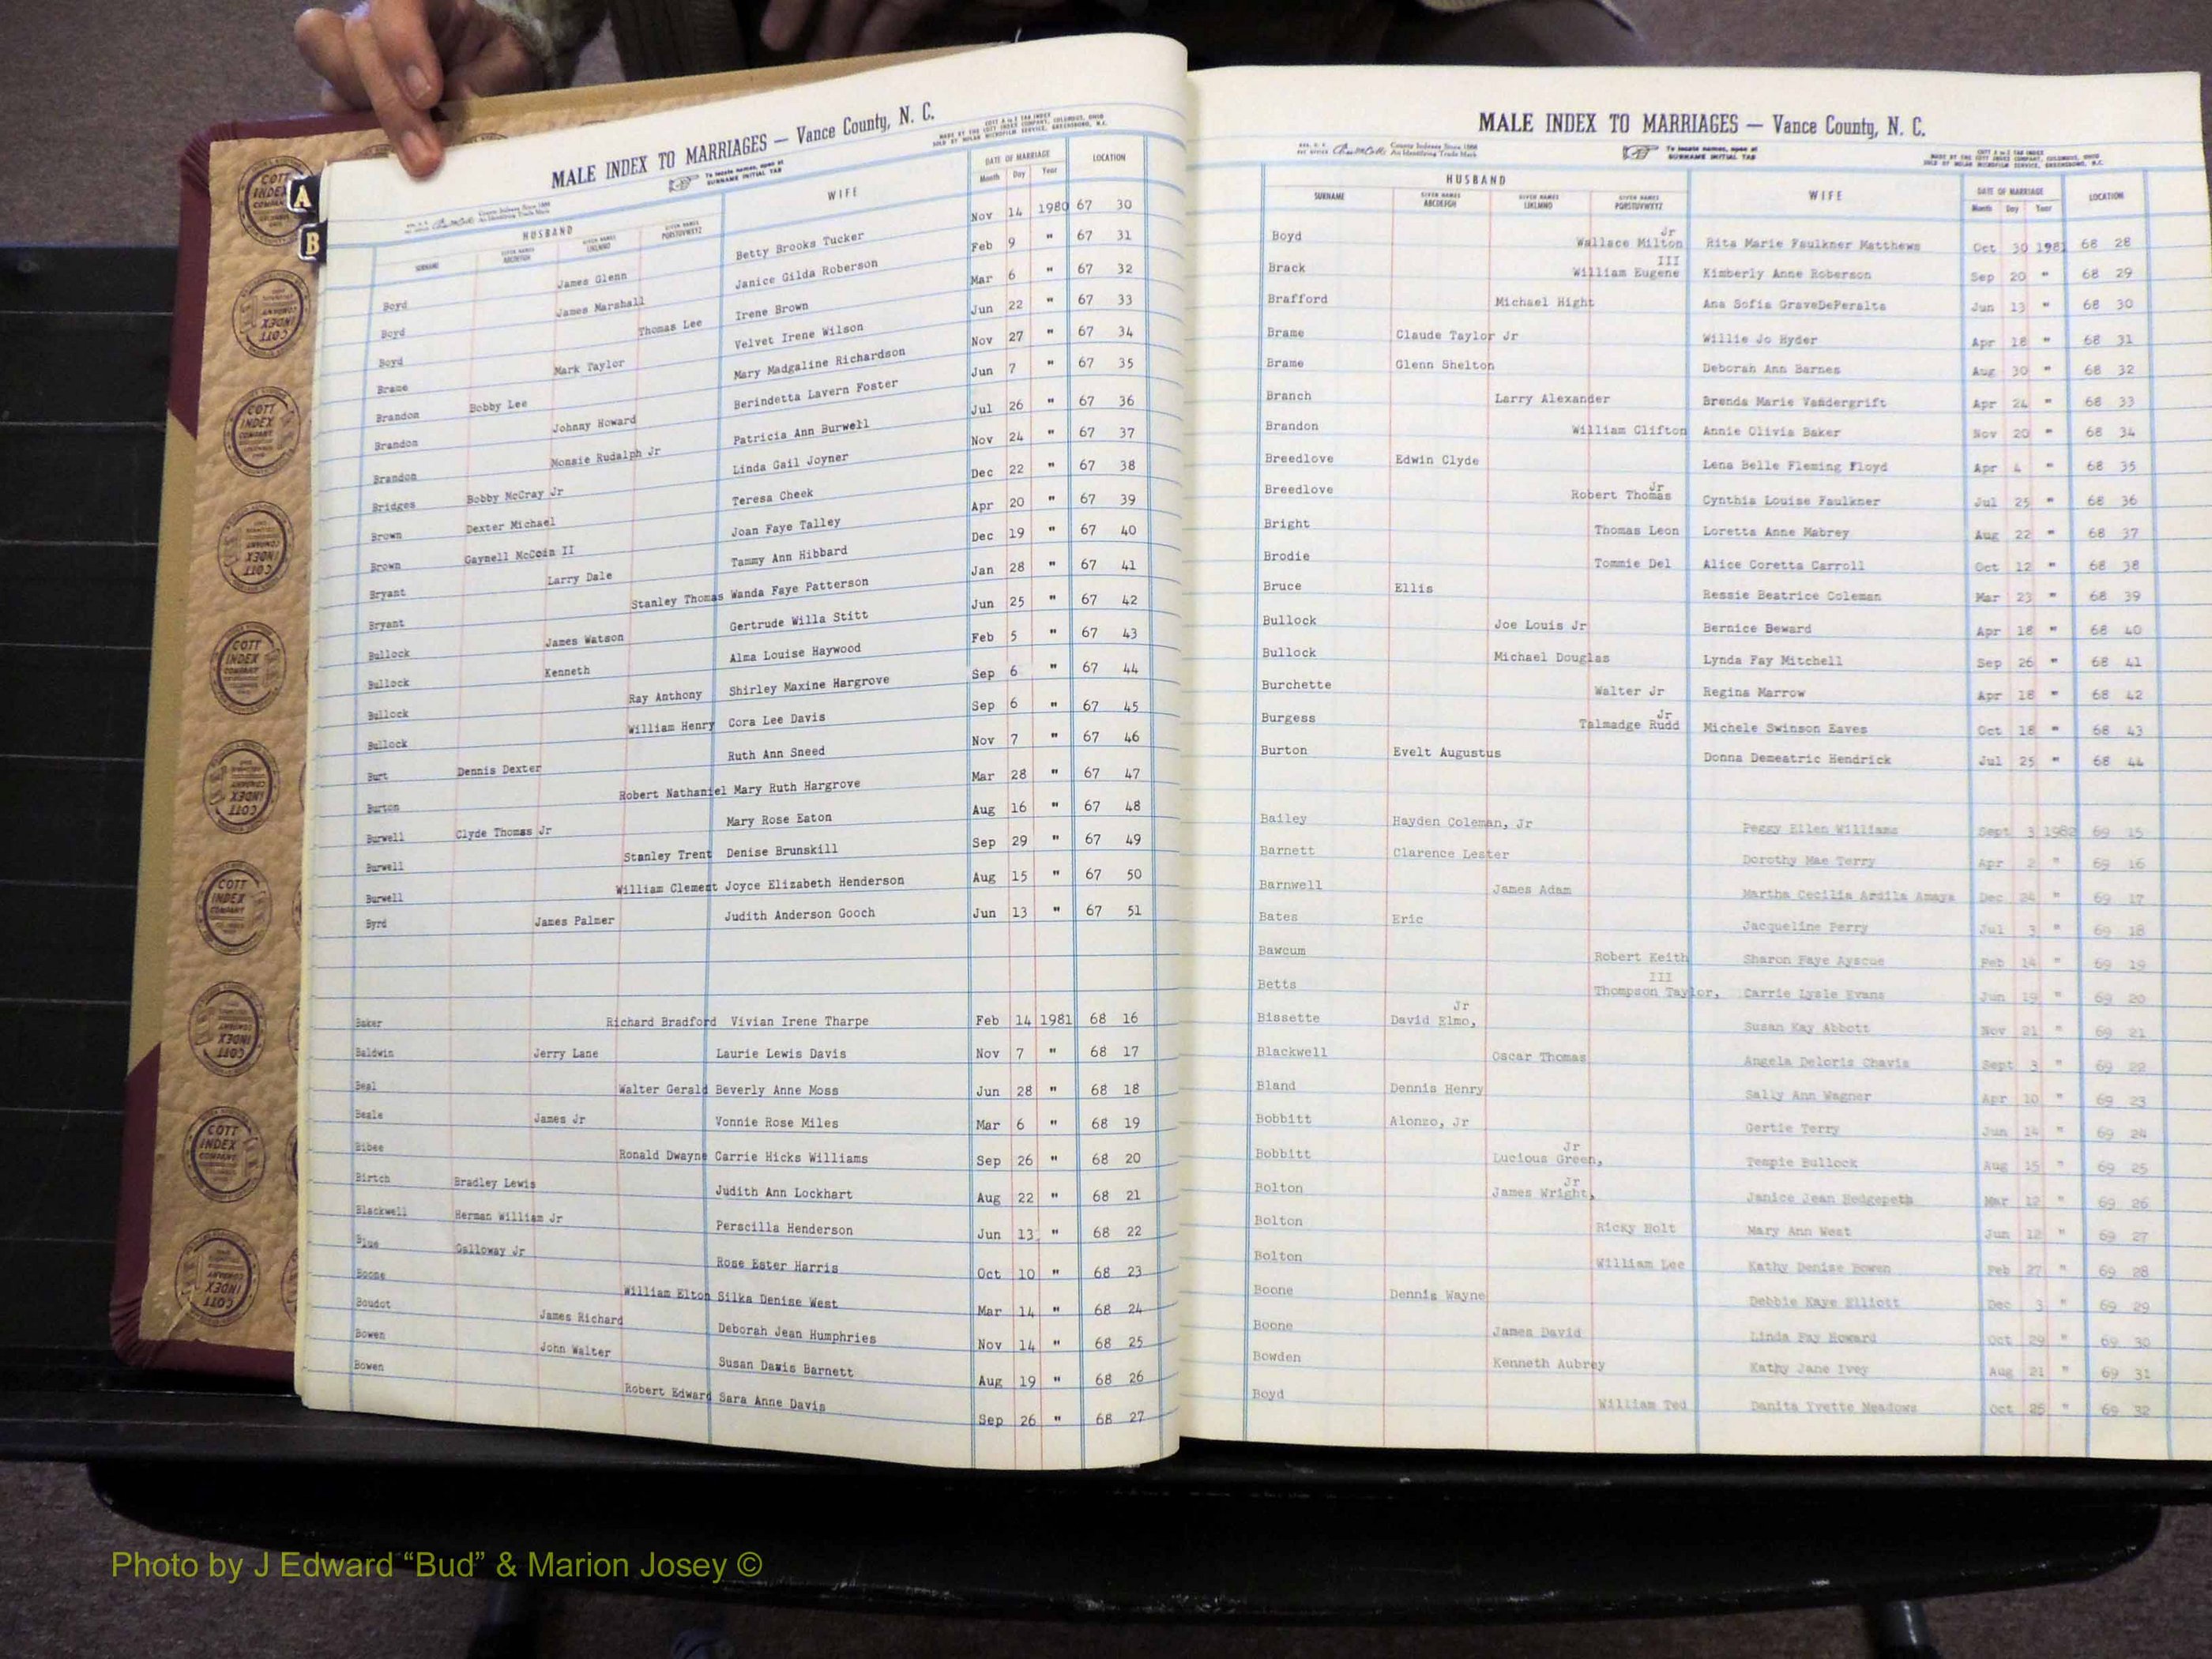 A
B
MALE INDEX TO MARRIAGES — Vance County, N. C.
To locate names, open at
SURNAME INITIAL TAB
COTT A to Z TAB INDEX
MADE BY THE COTT INDEX COMPANY, COLUMBUS, OHIO
SOLD BY NOLAN MICROFILM SERVICE, GREENSBORO, N.C.
HUSBAND WIFE DATE OF MARRIAGE LOCATION
SURNAME GIVEN NAMES ABCDEFGH GIVEN NAMES IJKLMNO GIVEN NAMES PQRSTUVWXYZ Month Day Year
Boyd James Glenn Betty Brooks Tucker Nov 14 1980 67 30
Boyd James Marshall Janice Gilda Roberson Feb 9 " 67 31
Boyd Thomas Lee Irene Brown Mar 6 " 67 32
Brame Mark Taylor Velvet Irene Wilson Jun 22 " 67 33
Brandon Bobby Lee Mary Madgaline Richardson Nov 27 " 67 34
Brandon Johnny Howard Berindetta Lavern Foster Jun 7 " 67 35
Brandon Monsie Rudalph Jr Patricia Ann Burwell Jul 26 " 67 36
Bridges Bobby McCray Jr Linda Gail Joyner Nov 24 " 67 37
Brown Dexter Michael Teresa Cheek Dec 22 " 67 38
Brown Gaynell McCoin II Joan Faye Talley Apr 20 " 67 39
Bryant Larry Dale Tammy Ann Hibbard Dec 19 " 67 40
Bryant Stanley Thomas Wanda Faye Patterson Jan 28 " 67 41
Bullock James Watson Gertrude Willa Stitt Jun 25 " 67 42
Bullock Kenneth Alma Louise Haywood Feb 5 " 67 43
Bullock Ray Anthony Shirley Maxine Hargrove Sep 6 " 67 44
Bullock William Henry Cora Lee Davis Sep 6 " 67 45
Burt Dennis Dexter Ruth Ann Sneed Nov 7 " 67 46
Burton Robert Nathaniel Mary Ruth Hargrove Mar 28 " 67 47
Burwell Clyde Thomas Jr Mary Rose Eaton Aug 16 " 67 48
Burwell Stanley Trent Denise Brunskill Sep 29 " 67 49
Burwell William Clement Joyce Elizabeth Henderson Aug 15 " 67 50
Byrd James Palmer Judith Anderson Gooch Jun 13 " 67 51
Baker Richard Bradford Vivian Irene Tharpe Feb 14 1981 68 16
Baldwin Jerry Lane Laurie Lewis Davis Nov 7 " 68 17
Beal Walter Gerald Beverly Anne Moss Jun 28 " 68 18
Beale James Jr Vonnie Rose Miles Mar 6 " 68 19
Bibee Ronald Dwayne Carrie Hicks Williams Sep 26 " 68 20
Birtch Bradley Lewis Judith Ann Lockhart Aug 22 " 68 21
Blackwell Herman William Jr Perscilla Henderson Jun 13 " 68 22
Blue Galloway Jr Rose Ester Harris Oct 10 " 68 23
Boone William Elton Silka Denise West Mar 14 " 68 24
Boudot James Richard Deborah Jean Humphries Nov 14 " 68 25
Bowen John Walter Susan Davis Barnett Aug 19 " 68 26
Bowen Robert Edward Sara Anne Davis Sep 26 " 68 27
MALE INDEX TO MARRIAGES — Vance County, N. C.
County Indexes Since 1888
An Identifying Trade Mark
To locate names, open at
SURNAME INITIAL TAB
COTT A to Z TAB INDEX
MADE BY THE COTT INDEX COMPANY, COLUMBUS, OHIO
SOLD BY NOLAN MICROFILM SERVICE, GREENSBORO, N.C.
HUSBAND WIFE DATE OF MARRIAGE LOCATION
SURNAME GIVEN NAMES ABCDEFGH GIVEN NAMES IJKLMNO GIVEN NAMES PQRSTUVWXYZ Month Day Year
Boyd Wallace Milton Jr Rita Marie Faulkner Matthews Oct 30 1981 68 28
Brack William Eugene III Kimberly Anne Roberson Sep 20 " 68 29
Brafford Michael Hight Ana Sofia GraveDePeralta Jun 13 " 68 30
Brame Claude Taylor Jr Willie Jo Hyder Apr 18 " 68 31
Brame Glenn Shelton Deborah Ann Barnes Aug 30 " 68 32
Branch Larry Alexander Brenda Marie Vandergrift Apr 24 " 68 33
Brandon William Clifton Annie Olivia Baker Nov 20 " 68 34
Breedlove Edwin Clyde Lena Belle Fleming Floyd Apr 4 " 68 35
Breedlove Robert Thomas Jr Cynthia Louise Faulkner Jul 25 " 68 36
Bright Thomas Leon Loretta Anne Mabrey Aug 22 " 68 37
Brodie Tommie Del Alice Coretta Carroll Oct 12 " 68 38
Bruce Ellis Ressie Beatrice Coleman Mar 23 " 68 39
Bullock Joe Louis Jr Bernice Beward Apr 18 " 68 40
Bullock Michael Douglas Lynda Fay Mitchell Sep 26 " 68 41
Burchette Walter Jr Regina Marrow Apr 18 " 68 42
Burgess Talmadge Rudd Jr Michele Swinson Eaves Oct 18 " 68 43
Burton Evelt Augustus Donna Demeatric Hendrick Jul 25 " 68 44
Bailey Hayden Coleman, Jr Peggy Ellen Williams Sept 3 1982 69 15
Barnett Clarence Lester Dorothy Mae Terry Apr 2 " 69 16
Barnwell James Adam Martha Cecilia Ardila Amaya Dec 24 " 69 17
Bates Eric Jacqueline Perry Jul 3 " 69 18
Bawcum Robert Keith Sharon Faye Ayscue Feb 14 " 69 19
Betts Thompson Taylor, III Carrie Lysle Evans Jun 19 " 69 20
Bissette David Elmo, Jr Susan Kay Abbott Nov 21 " 69 21
Blackwell Oscar Thomas Angela Deloris Chavis Sept 3 " 69 22
Bland Dennis Henry Sally Ann Wagner Apr 10 " 69 23
Bobbitt Alonzo, Jr Gertie Terry Jun 14 " 69 24
Bobbitt Lucious Green, Jr Tempie Bullock Aug 15 " 69 25
Bolton James Wright, Jr Janice Jean Hedgepeth Mar 12 " 69 26
Bolton Ricky Holt Mary Ann West Jun 12 " 69 27
Bolton William Lee Kathy Denise Bowen Feb 27 " 69 28
Boone Dennis Wayne Debbie Kaye Elliott Dec 3 " 69 29
Boone James David Linda Fay Howard Oct 29 " 69 30
Bowden Kenneth Aubrey Kathy Jane Ivey Aug 21 " 69 31
Boyd William Ted Danita Yvette Meadows Oct 25 " 69 32
Photo by J Edward “Bud” & Marion Josey ©